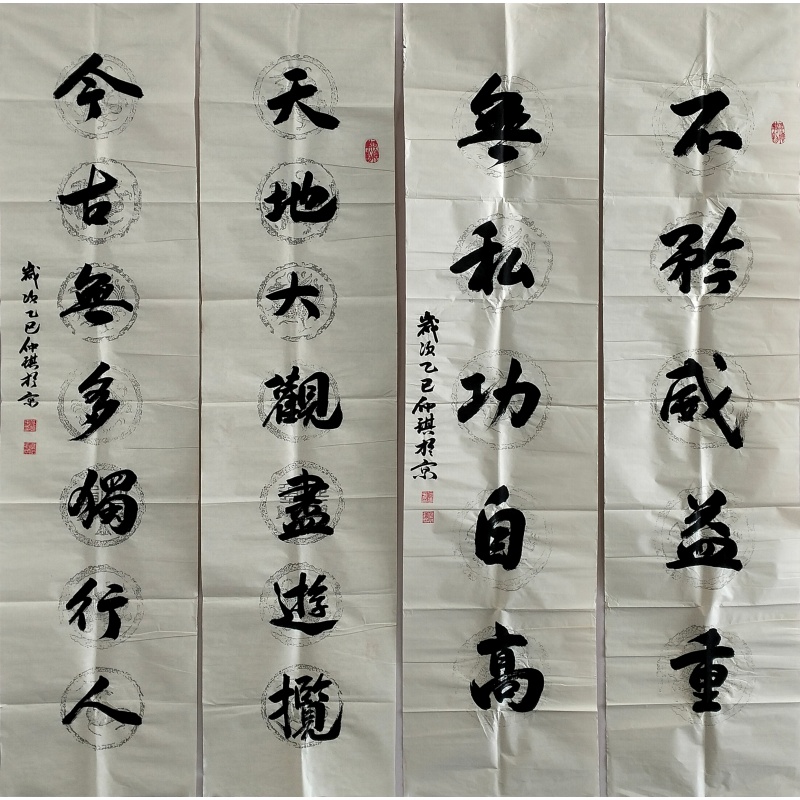 不矜威益重
無私功自高
歲次乙巳仲琪於京
天地大觀盡遊攬
今古無多獨行人
歲次乙巳仲琪於京